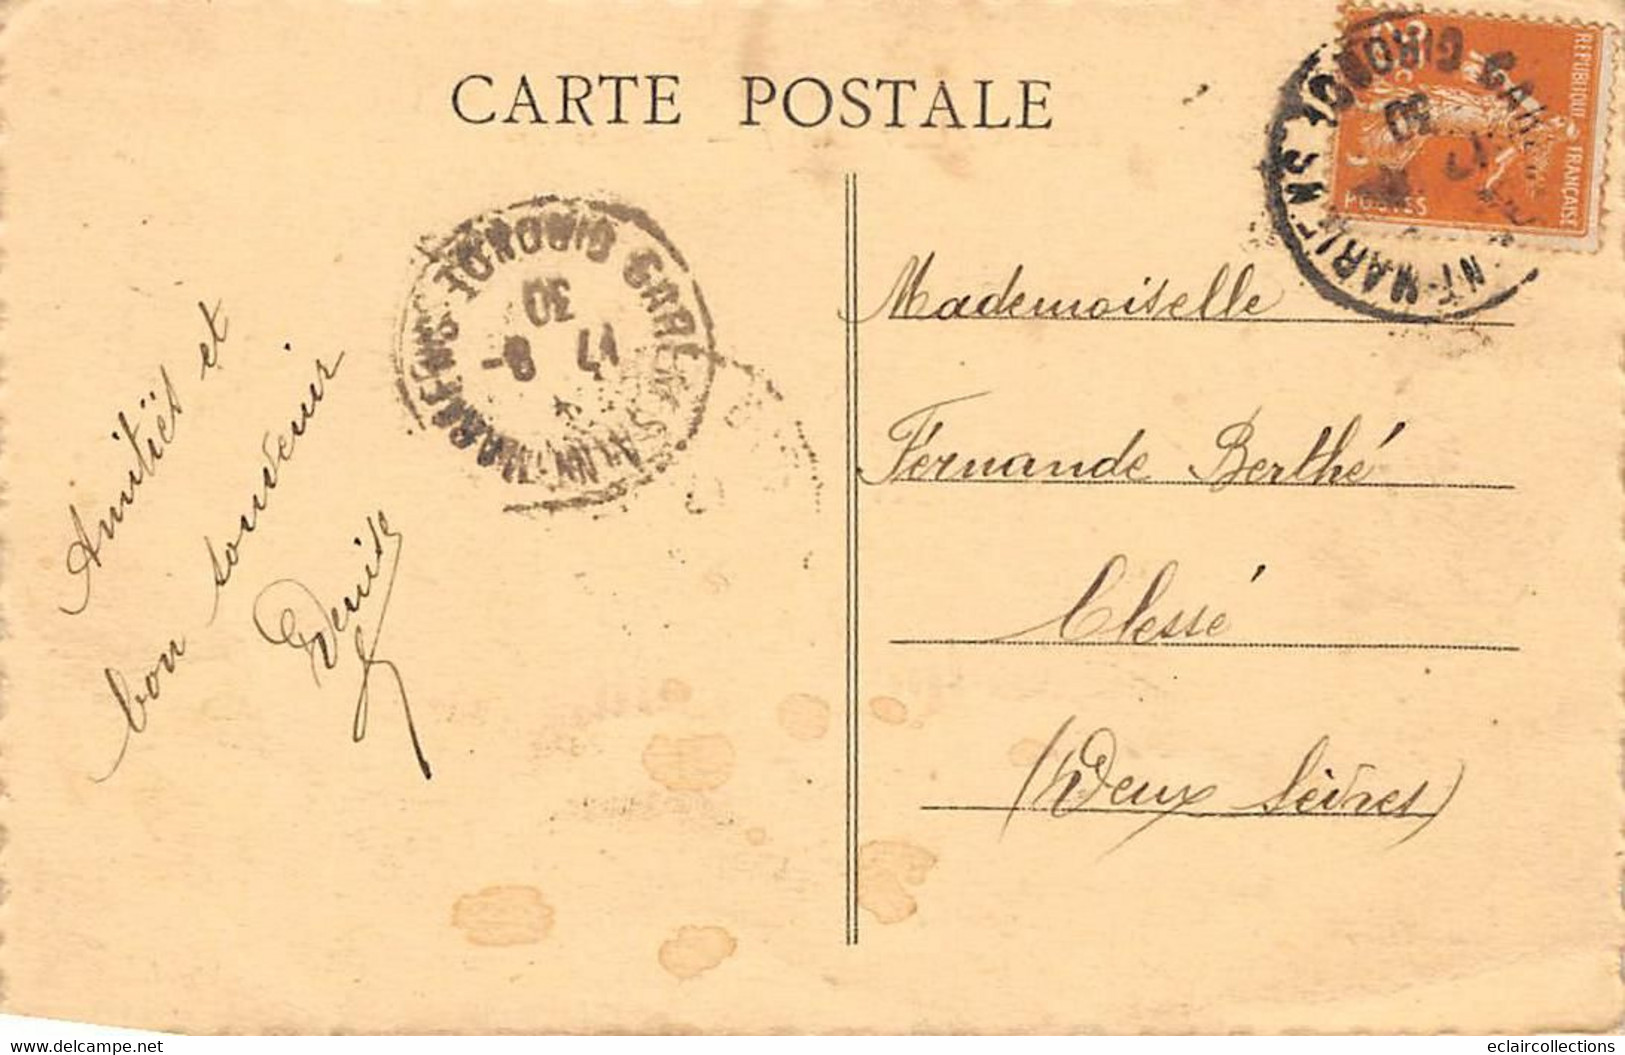 CARTE POSTALE
Amitiés et
bon souvenir
Denise
SAINT-MARIENS
GARE
GIRONDE
17 - 8
30
REPUBLIQUE FRANÇAISE
POSTES
GIRONDE
30
Mademoiselle
Fernande Berthé
Clessé
(Deux Sèvres)
www.delcampe.net
eclaircollections